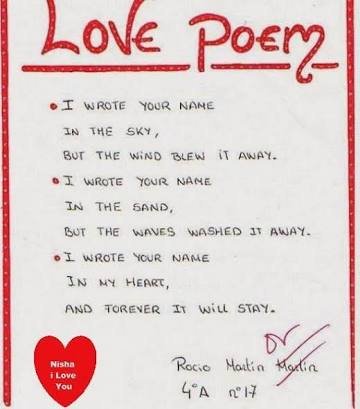 LOVE POEM
I WROTE YOUR NAME
IN THE SKY,
BUT THE WIND BLEW IT AWAY.
I WROTE YOUR NAME
IN THE SAND,
BUT THE WAVES WASHED IT AWAY.
I WROTE YOUR NAME
IN MY HEART,
AND FOREVER IT WILL STAY.
Nisha
i Love
You
Rocio Martin Martin
4°A nº17